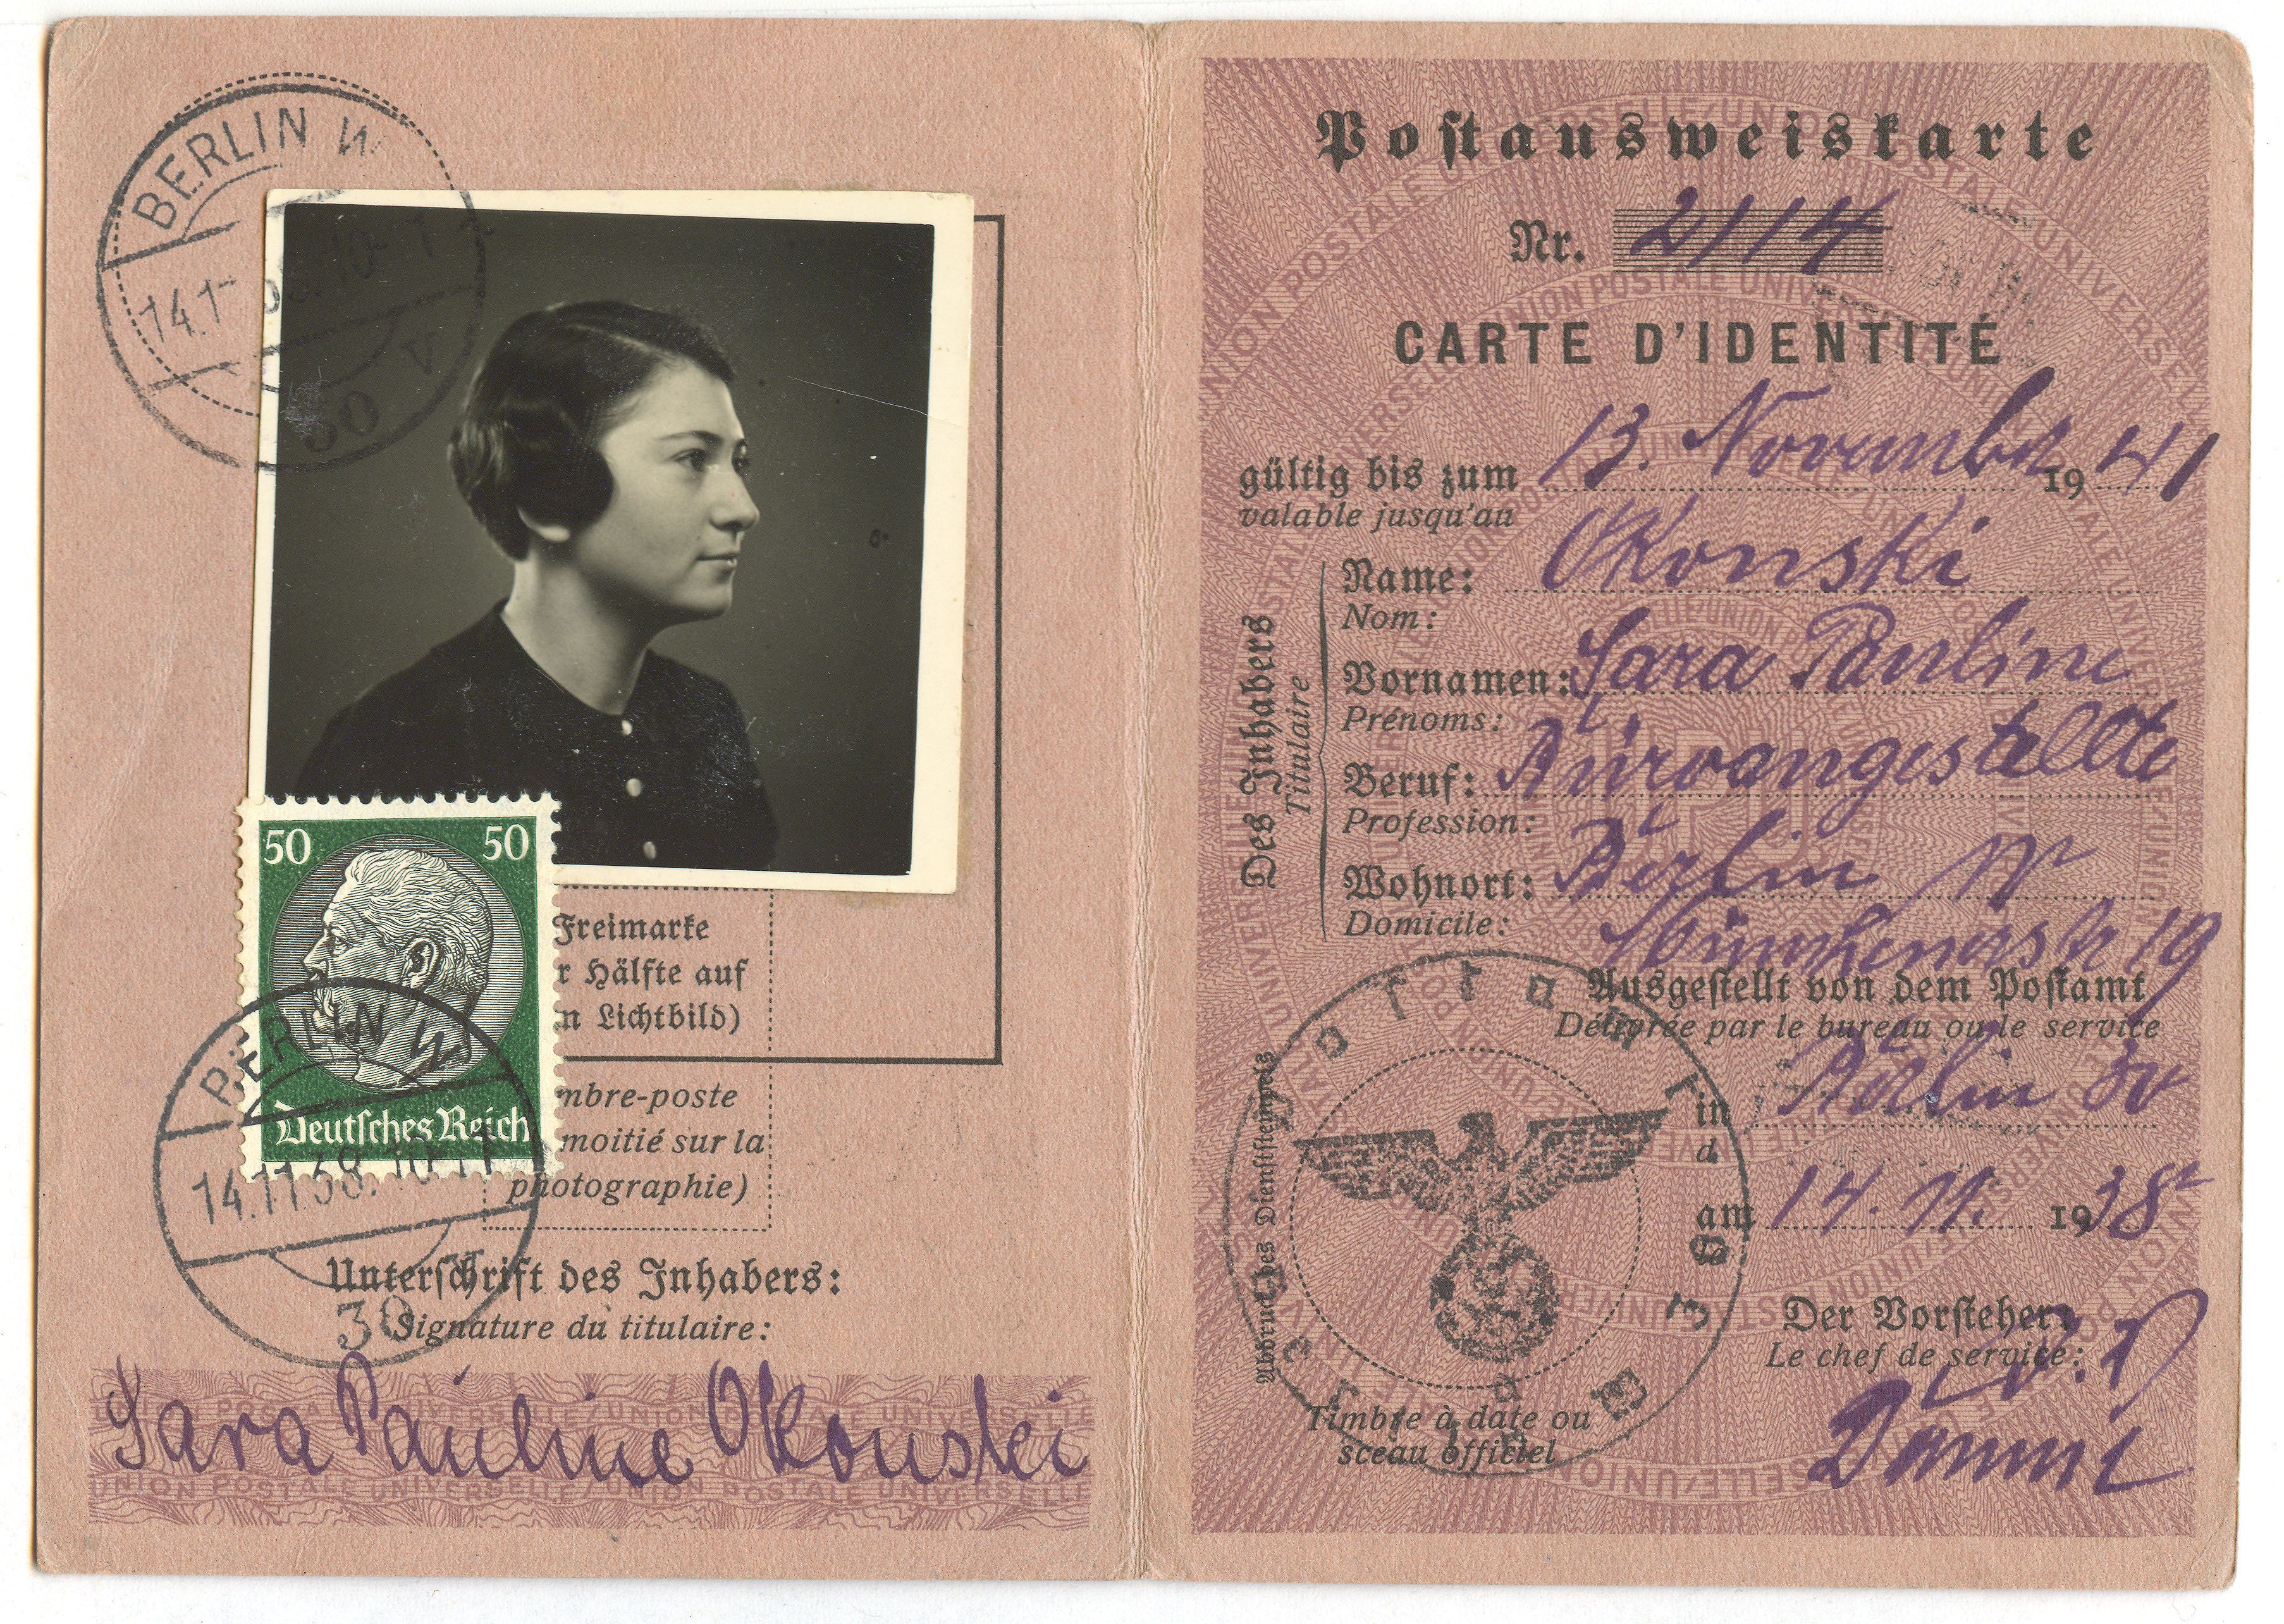 BERLIN W
30
v
50 50
Deutsches Reich
BERLIN W
14.11.38.10-11
30
Freimarke
r Hälfte auf
n Lichtbild)
mbre-poste
moitié sur la
photographie)
Unterschrift des Inhabers:
Signature du titulaire:
Sara Pauline Okonski
UNION POSTALE UNIVERSELLE/UNION POSTALE UNIVERSELLE
Postausweiskarte
Nr. 2114
CARTE D'IDENTITÉ
gültig bis zum 13. November 1941
valable jusqu'au
Des Inhabers
Titulaire
Name: Okonski
Nom:
Vornamen: Sara Pauline
Prénoms:
Beruf: Büroangestellte
Profession:
Wohnort: Berlin W
Domicile:
Münchenerstr 19
Ausgestellt von dem Postamt
Délivrée par le bureau ou le service
in Berlin 30
d
am 14. 11. 1938
Abdruck des Dienststempels
Timbre à date ou
sceau officiel
Der Vorsteher:
Le chef de service: